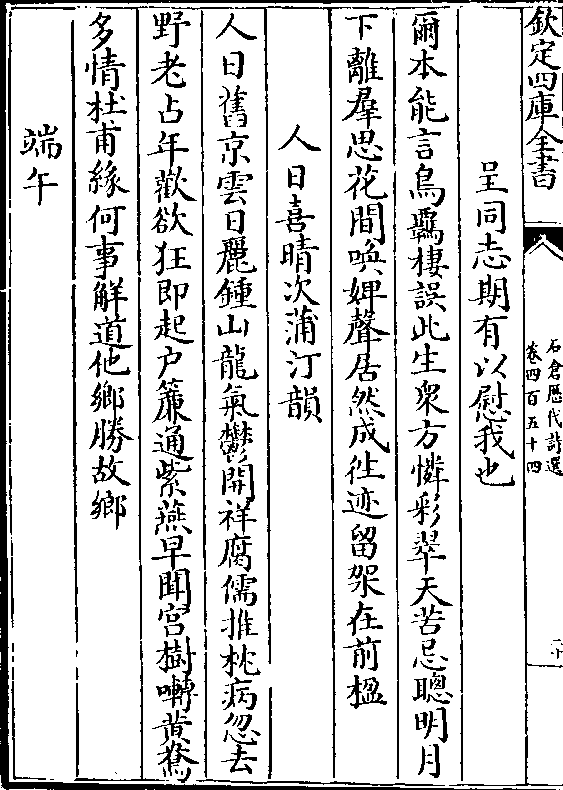 欽定四庫全書
石倉歷代詩選
卷四百五十四
二十
呈同志期有以慰我也
爾本能言鳥羈棲誤此生衆方憐彩翠天苦忌聰明月
下離羣思花間喚婢聲居然成徃迹留架在前楹
人日喜晴次蒲汀韻
人日舊京雲日麗鍾山龍氣鬱開祥腐儒推枕病忽去
野老占年歡欲狂即起户簾通紫燕早聞宮樹囀黄鶯
多情杜甫緣何事解道他鄉勝故鄉
端午